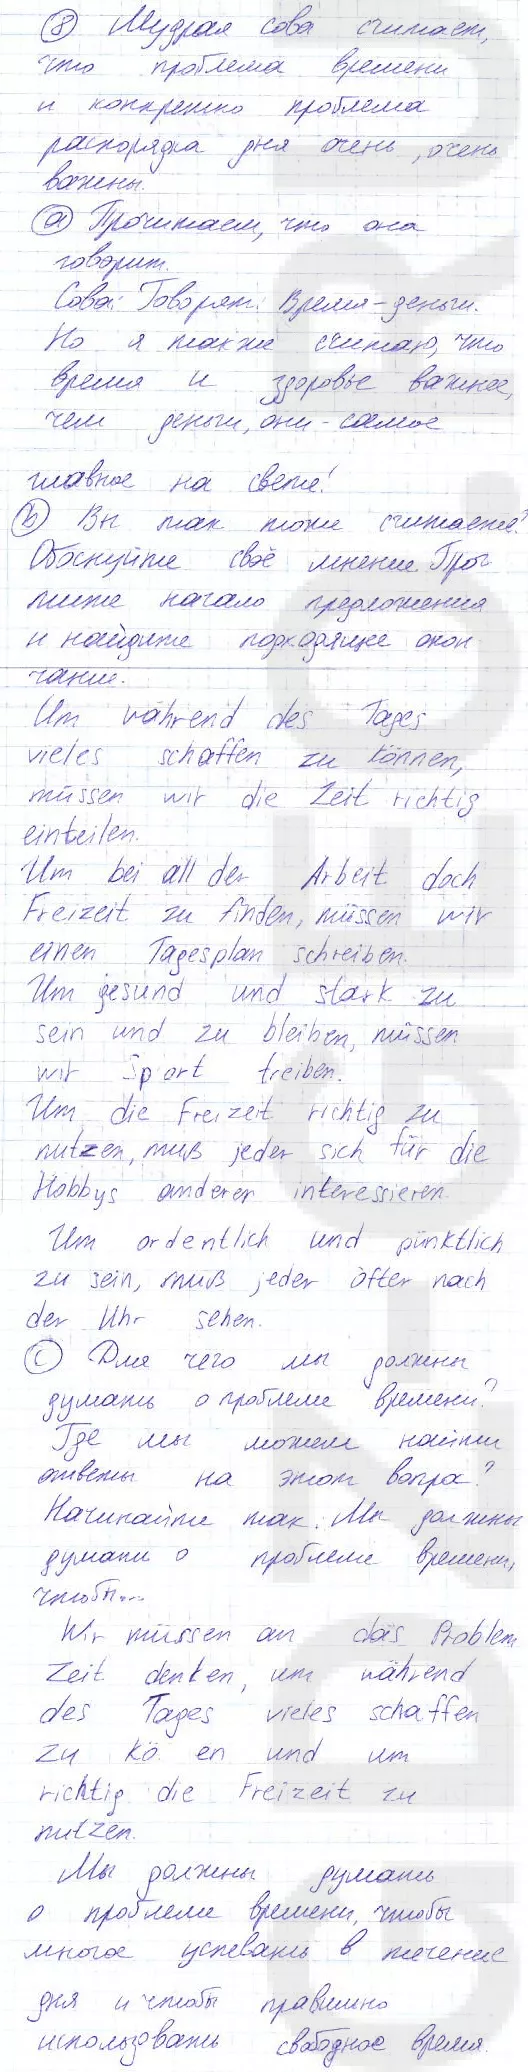 ⑧ Мудрая сова считает,
что проблема времени
и конкретно проблема
распорядка дня очень, очень
важны.
ⓐ Прочитаем, что она
говорит.
Сова: Говорят: Время – деньги.
Но я также считаю, что
время и здоровье важнее,
чем деньги, они – самое
главное на свете!
ⓑ Вы так тоже считаете?
Обоснуйте своё мнение. Проч
тите начало предложения
и найдите подходящее окон
чание.
Um während des Tages
vieles schaffen zu können,
müssen wir die Zeit richtig
einteilen.
Um bei all der Arbeit doch
Freizeit zu finden, müssen wir
einen Tagesplan schreiben.
Um gesund und stark zu
sein und zu bleiben, müssen
wir Sport treiben.
Um die Freizeit richtig zu
nutzen, muß jeder sich für die
Hobbys anderer interessieren.
Um ordentlich und pünktlich
zu sein, muß jeder öfter nach
der Uhr sehen.
ⓒ Для чего мы должны
думать о проблеме времени?
Где мы можем найти
ответы на этот вопрос?
Начинайте так: Мы должны
думать о проблеме времени,
чтобы...
Wir müssen an das Problem
Zeit denken, um während
des Tages vieles schaffen
zu kö en und um
richtig die Freizeit zu
nutzen.
Мы должны думать
о проблеме времени, чтобы
многое успевать в течение
дня и чтобы правильно
использовать свободное время.